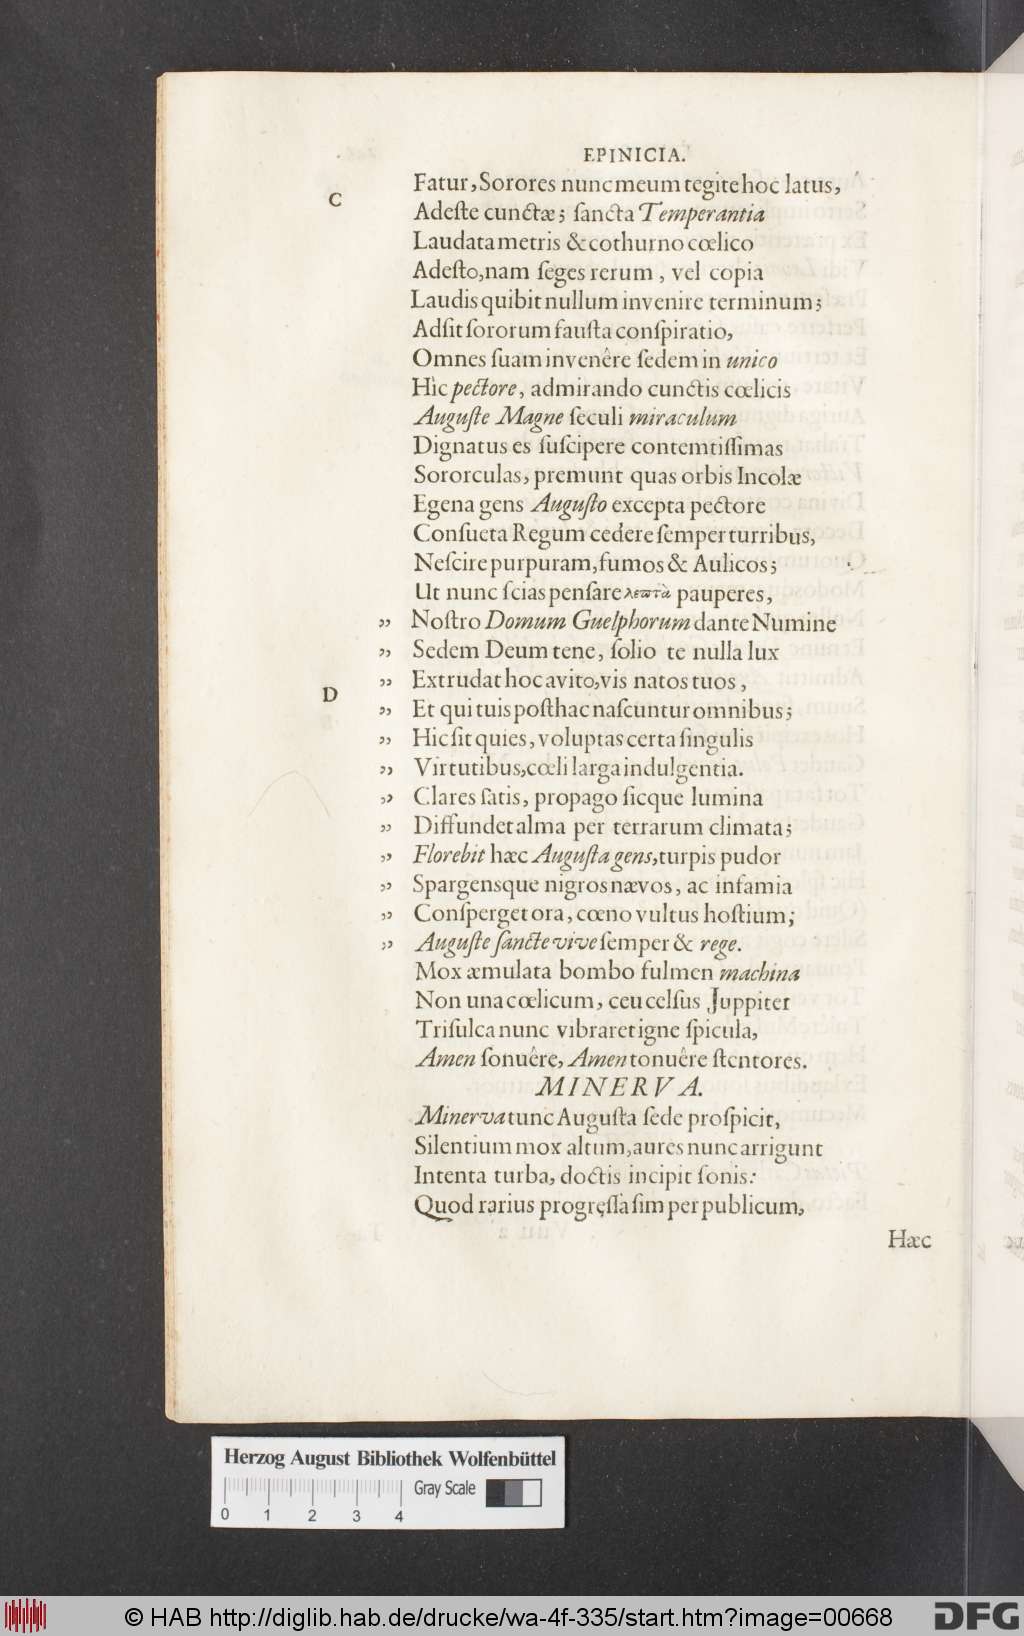 EPINICIA.
Fatur, Sorores nunc meum tegite hoc latus,
C
Adeſte cunctæ; ſancta Temperantia
Laudata metris & cothurno cœlico
Adeſto, nam ſeges rerum, vel copia
Laudis quibit nullum invenire terminum;
Adſit ſororum fauſta conſpiratio,
Omnes ſuam invenêre ſedem in unico
Hìc pectore, admirando cunctis cœlicis
Auguſte Magne ſeculi miraculum
Dignatus es ſuſcipere contemtiſſimas
Sororculas, premunt quas orbis Incolæ
Egena gens Auguſto excepta pectore
Conſueta Regum cedere ſemper turribus,
Neſcire purpuram, fumos & Aulicos;
Ut nunc ſcias penſare λεπτὰ pauperes,
„ Noſtro Domum Guelphorum dante Numine
„ Sedem Deum tene, ſolio te nulla lux
„ Extrudat hoc avito, vis natos tuos,
D
„ Et qui tuis poſthac naſcuntur omnibus;
„ Hic ſit quies, voluptas certa ſingulis
„ Virtutibus, cœli larga indulgentia.
„ Clares ſatis, propago ſicque lumina
„ Diffundet alma per terrarum climata;
„ Florebit hæc Auguſta gens, turpis pudor
„ Spargensque nigros nævos, ac infamia
„ Conſperget ora, cœno vultus hoſtium;
„ Auguſte ſancte vive ſemper & rege.
Mox æmulata bombo fulmen machina
Non una cœlicum, ceu celſus Juppiter
Triſulca nunc vibraret igne ſpicula,
Amen ſonuêre, Amen tonuêre ſtentores.
MINERVA.
Minerva tunc Auguſta ſede proſpicit,
Silentium mox altum, aures nunc arrigunt
Intenta turba, doctis incipit ſonis:
Quod rarius progreſſa ſim per publicum,
Hæc
Herzog August Bibliothek Wolfenbüttel
Gray Scale
0 1 2 3 4
© HAB http://diglib.hab.de/drucke/wa-4f-335/start.htm?image=00668
DFG